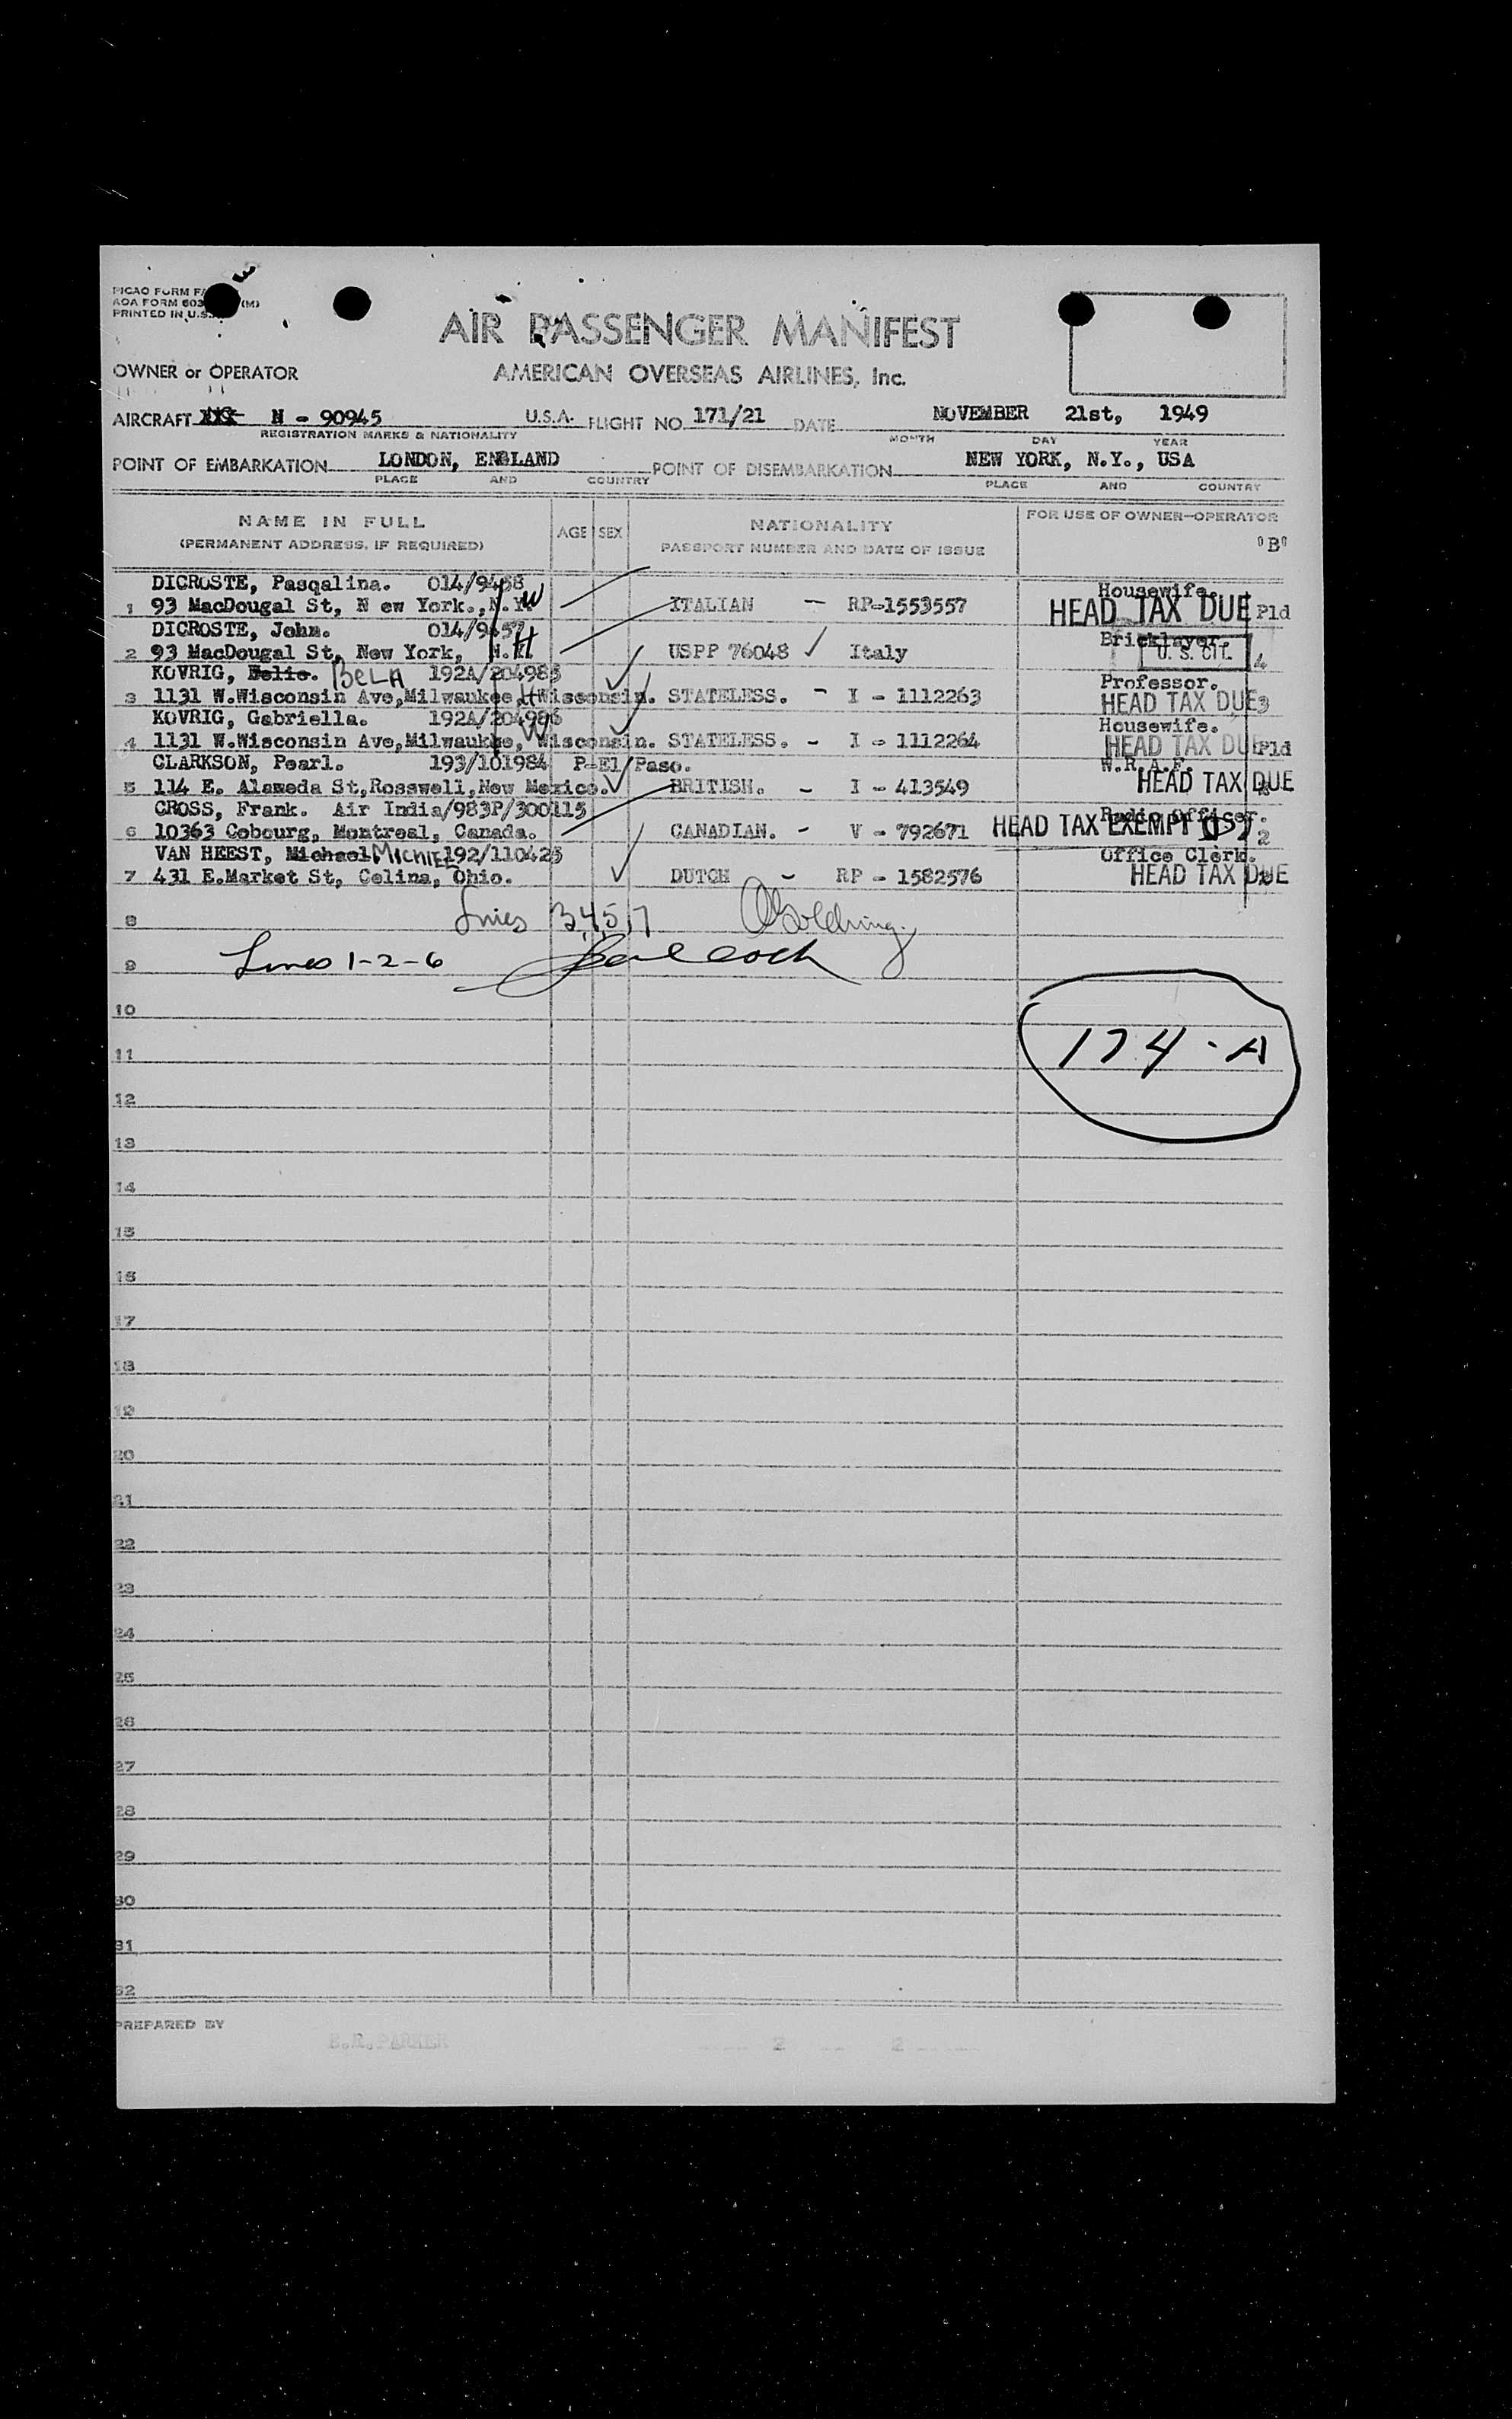 PICAO FORM
AOA FORM 603 (M)
PRINTED IN U.S.
AIR PASSENGER MANIFEST
OWNER or OPERATOR AMERICAN OVERSEAS AIRLINES, Inc.
AIRCRAFT N - 90945 U.S.A. FLIGHT NO. 171/21 DATE NOVEMBER 21st, 1949
REGISTRATION MARKS & NATIONALITY MONTH DAY YEAR
POINT OF EMBARKATION LONDON, ENGLAND POINT OF DISEMBARKATION NEW YORK, N.Y., USA
PLACE AND COUNTRY PLACE AND COUNTRY
NAME IN FULL AGE SEX NATIONALITY FOR USE OF OWNER-OPERATOR
(PERMANENT ADDRESS, IF REQUIRED) PASSPORT NUMBER AND DATE OF ISSUE "B"
DICROSTE, Pasqalina. 014/9458 Housewife.
1 93 MacDougal St, N ew York.,N.Y. W ITALIAN - RP-1553557 HEAD TAX DUE Pld
DICROSTE, John. 014/9457 Bricklayer.
2 93 MacDougal St, New York, N. H USPP 76048 ✓ Italy U. S. CIT. 4
KOVRIG, Belic. BELA 192A/204985 Professor.
3 1131 W.Wisconsin Ave,Milwaukee, H Wisconsin. STATELESS. - I - 1112263 HEAD TAX DUE 3
KOVRIG, Gabriella. 192A/204986 Housewife.
4 1131 W.Wisconsin Ave,Milwaukee, W Wisconsin. STATELESS. - I - 1112264 HEAD TAX DUE Pld
CLARKSON, Pearl. 193/101984 P-El Paso. W.R.A.F.
5 114 E. Alameda St,Rosswell,New Mexico. BRITISH. - I - 413549 HEAD TAX DUE
CROSS, Frank. Air India/983P/300115 Radio Officer.
6 10363 Cobourg, Montreal, Canada. CANADIAN. - V - 792671 HEAD TAX EXEMPT 2
VAN HEEST, Michael MICHIEL 192/110425 Office Clerk.
7 431 E.Market St, Celina, Ohio. DUTCH - RP - 1582576 HEAD TAX DUE
8 Lines 3,4,5,7
9 Lines 1-2-6
10
174-A
11
12
13
14
15
16
17
18
19
20
21
22
23
24
25
26
27
28
29
30
31
32
PREPARED BY E.R.PARKER 2 2